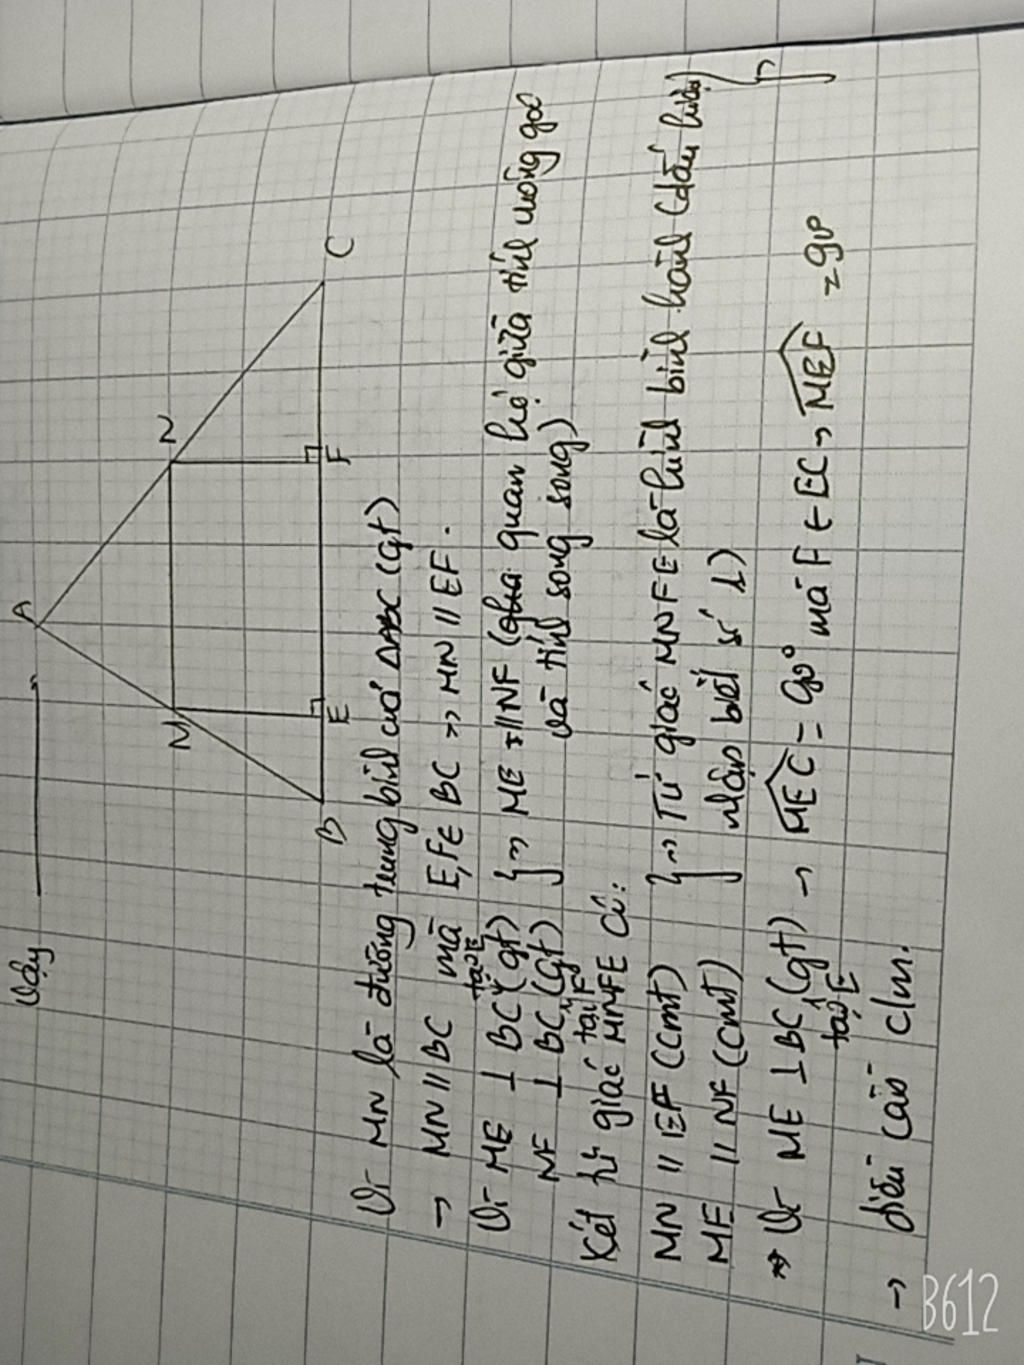 Vậy
A
M
N
B
E
F
C
Vì MN là đường trung bình của ΔABC (gt)
→ MN // BC mà E, F ∈ BC => MN // EF.
Vì ME ⊥ BC tại E (gt)
NF ⊥ BC tại F (gt)
} => ME // NF (quan hệ giữa tính vuông góc
và tính song song)
Xét tứ giác MNFE có:
MN // EF (cmt)
ME // NF (cmt)
} => Tứ giác MNFE là hình bình hành (dấu hiệu
nhận biết số 1)
}
=> Vì ME ⊥ BC tại E (gt) → MEC = 90° mà F ∈ EC → MEF = 90°
→ điều cần c/m.
B612